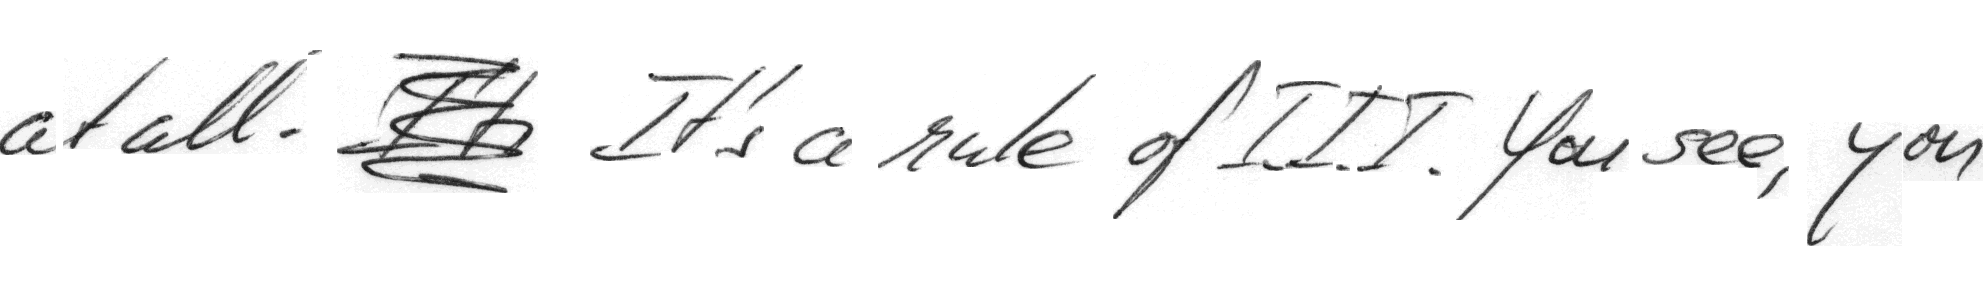 at all. It's a rule of I.I.I. You see, you